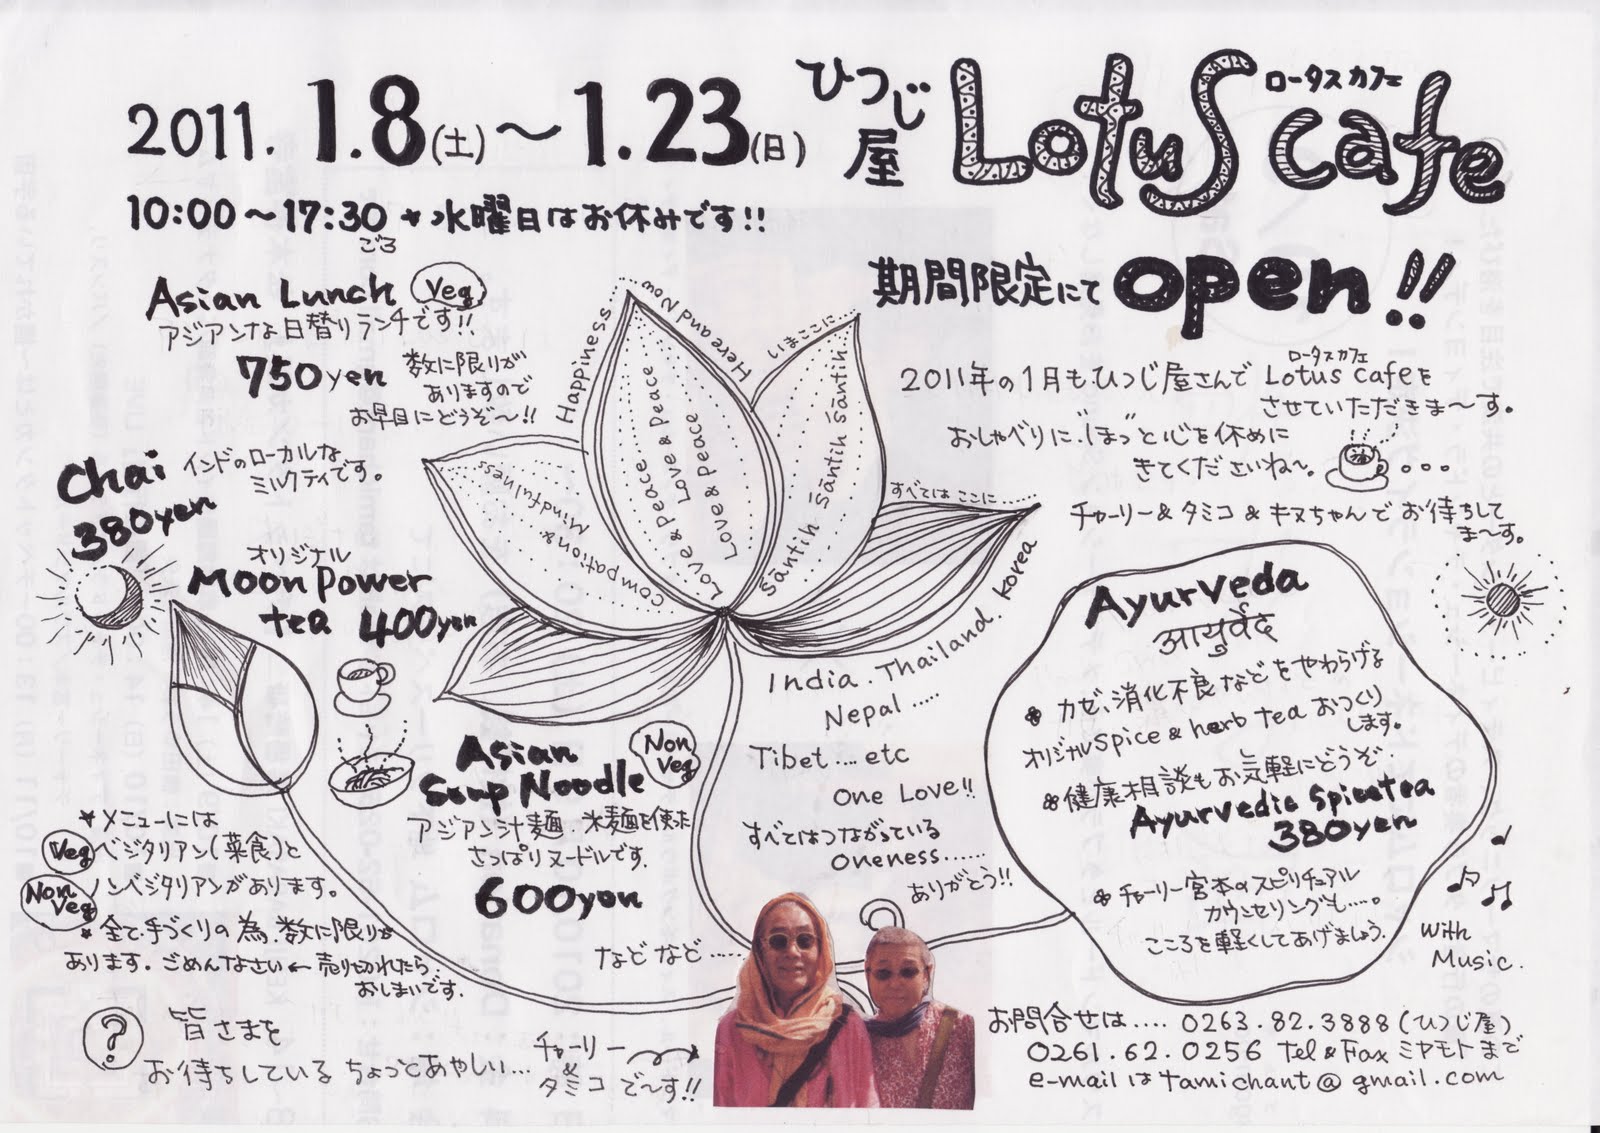 2011. 1.8(土)〜1.23(日)
ひつじ屋
ロータスカフェ
Lotus cafe
10:00〜17:30 * 水曜日はお休みです!!
ごろ
期間限定にて open!!
Asian Lunch Veg
アジアンな日替りランチです!!
750yen 数に限りが
ありますので
お早目にどうぞ〜!!
2011年の1月もひつじ屋さんで Lotus cafeを
ロータスカフェ
させていただきま〜す。
おしゃべりに、"ほっ"と心を休めに
きてくださいね〜。
チャーリー & タミコ & キヌちゃんで お待ちして
ま〜す。
Chai インドのローカルな
ミルクティです。
380yen
オリジナル
Moon Power
tea 400yen
Happiness......
Here and Now
いまここに......
すべては ここに......
Mindfulness
compation&
Love & Peace
Love & Peace
Love & Peace
Love & Peace
Śāntih Śāntih Śāntih
India. Thailand. Korea
Nepal.....
Tibet....etc
One Love!!
すべてはつながっている
oneness......
ありがとう!!
などなど......
Asian
Soup Noodle Non Veg
アジアン汁麺. 米麺を使った
さっぱりヌードルです.
600yen
*メニューには
Veg ベジタリアン(菜食)と
Non Veg ノンベジタリアンがあります。
*全て手づくりの為、数に限りが
あります. ごめんなさい ← 売り切れたら
おしまいです.
? 皆さまを
お待ちしている ちょっとあやしい...
チャーリー
&
タミコ で〜す!!
Ayurveda
आयुर्वेद
* カゼ、消化不良などをやわらげる
オリジナルspice & herb tea おつくり
します。
*健康相談もお気軽にどうぞ.
Ayurvedic Spice tea
380yen
* チャーリー宮本のスピリチュアル
カウンセリングも.....。
こころを軽くしてあげましょう.
With
Music.
お問合せは..... 0263.82.3888 (ひつじ屋)
0261.62.0256 tel & Fax ミヤモトまで
e-mail は tamichant@gmail.com